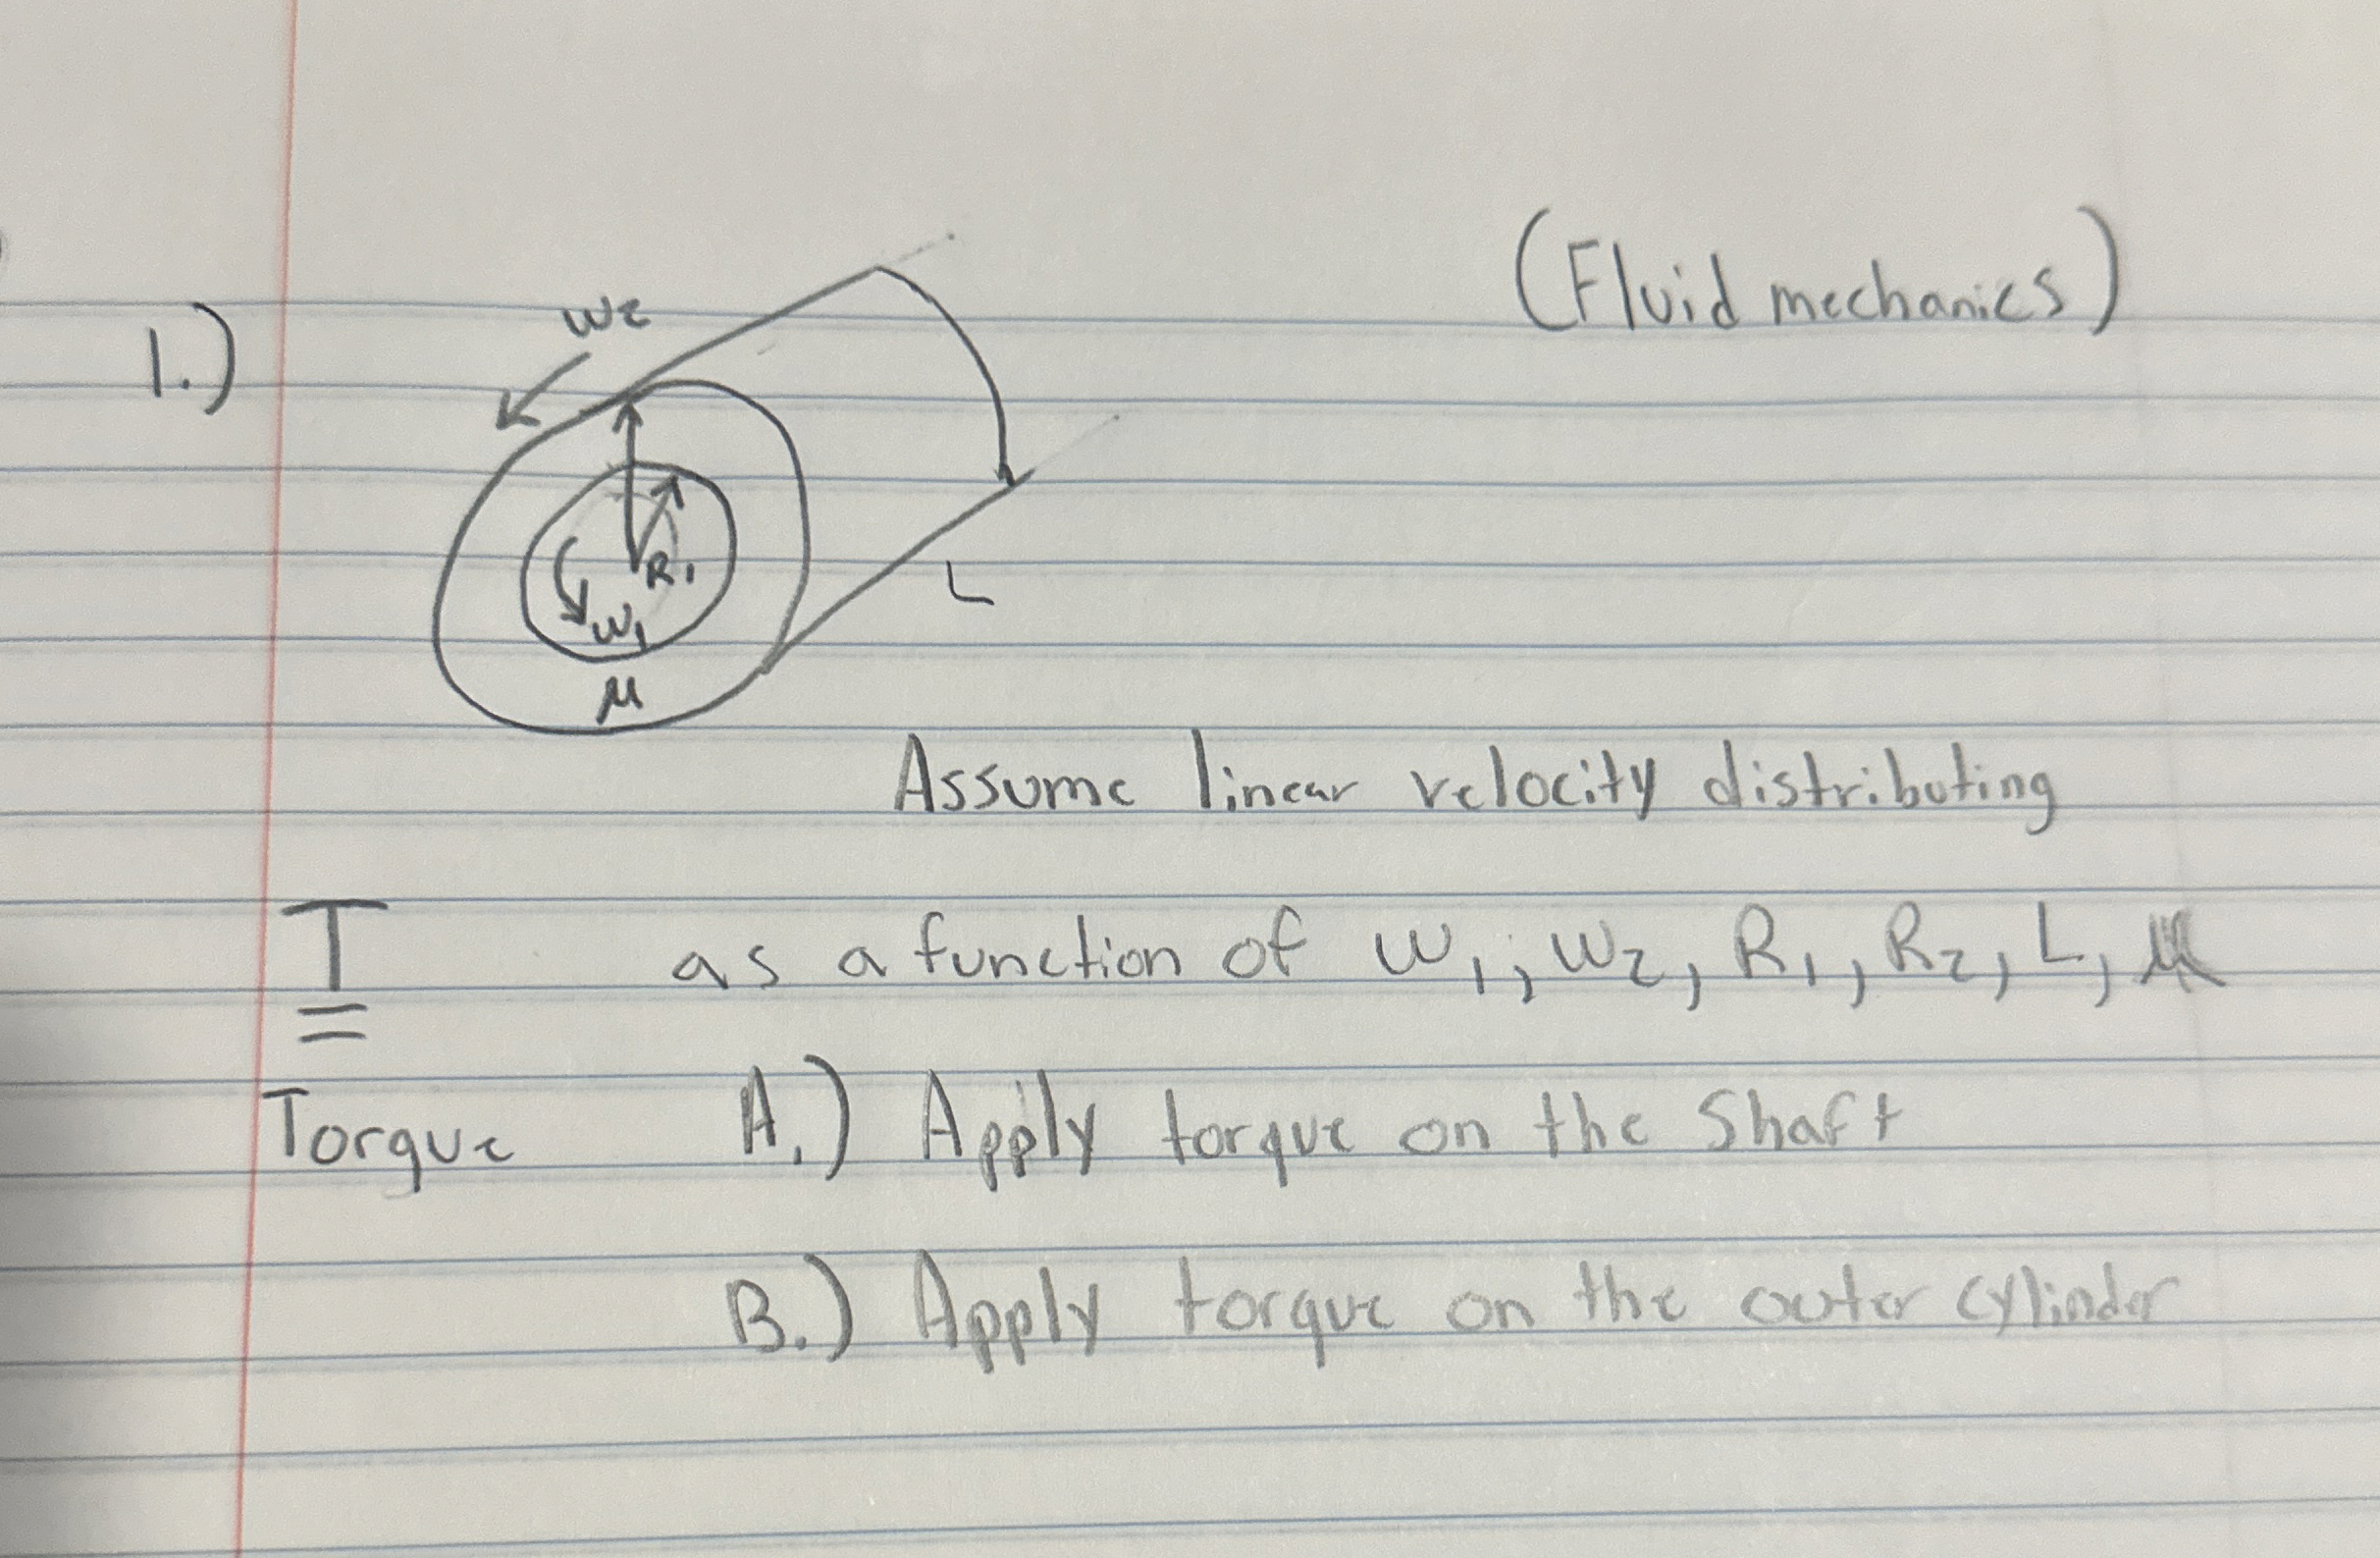 (Fluid mechanics)
1.)
w2
R1
w1
μ
L
Assume linear velocity distributing
T as a function of w1, w2, R1, R2, L, μ
Torque A.) Apply torque on the Shaft
B.) Apply torque on the outer cylinder